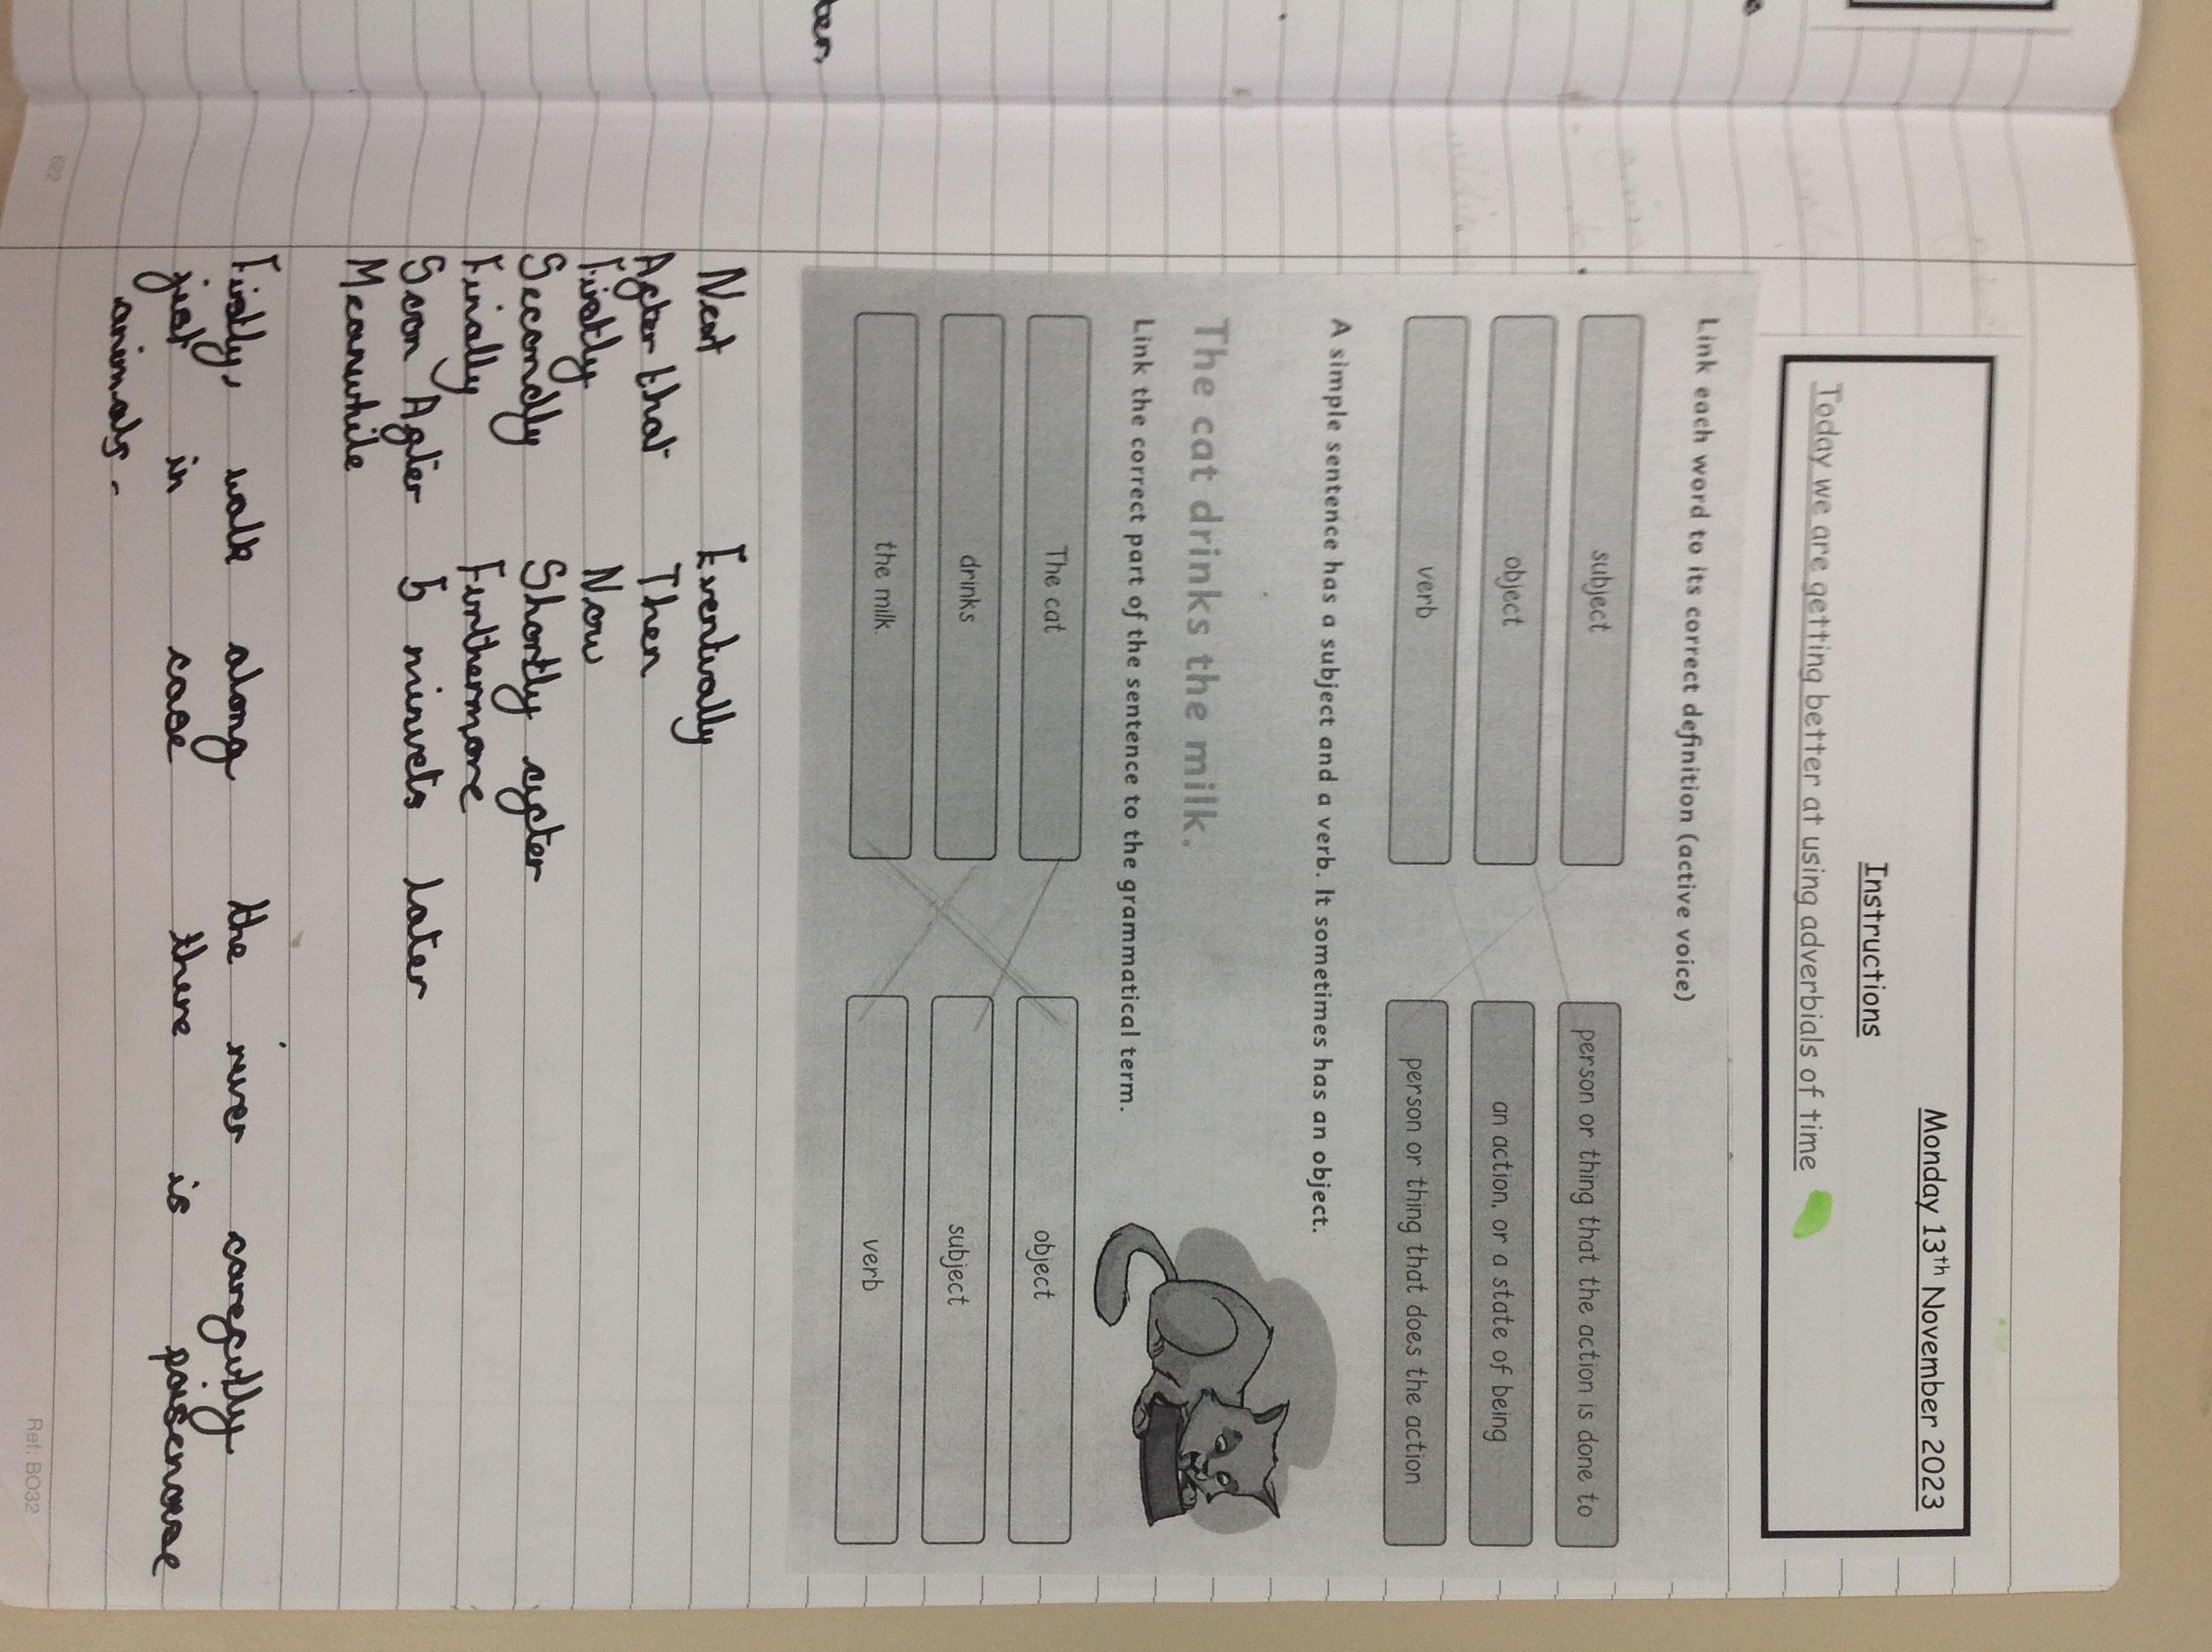 Monday 13th November 2023
Instructions
Today we are getting better at using adverbials of time
Link each word to its correct definition (active voice)
subject person or thing that the action is done to
object an action, or a state of being
verb person or thing that does the action
A simple sentence has a subject and a verb. It sometimes has an object.
The cat drinks the milk.
Link the correct part of the sentence to the grammatical term.
The cat object
drinks subject
the milk. verb
Next Eventually
After that Then
Firstly Now
Secondly Shortly after
Finally Furthermore
Soon After 5 minuets later
Meanwhile
Firstly, walk along the river carefully
just in case there is
animals.
Ref: BO32